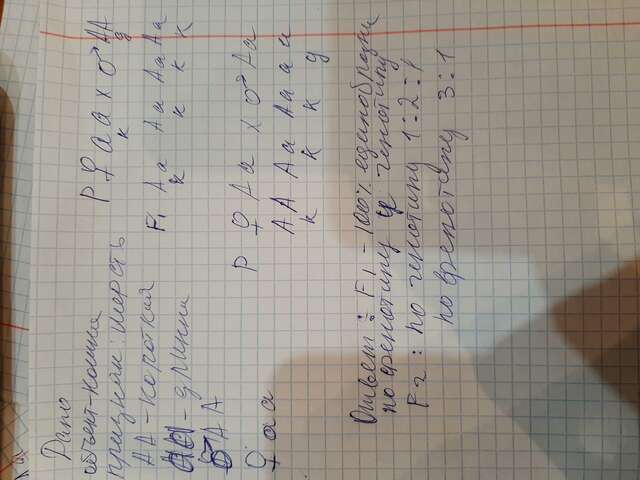 Дано
объект-кошка
признак: шерсть
АА - короткая
аа - длинная
♂ АА
♀ аа
P ♀ аа х ♂ АА
к д
F1 Аа Аа Аа Аа
к к к к
P ♀ Аа х ♂ Аа
АА Аа Аа аа
к к к д
Ответ: F1 - 100% единообразны
по фенотипу и генотипу
F2: по генотипу 1:2:1
по фенотипу 3:1